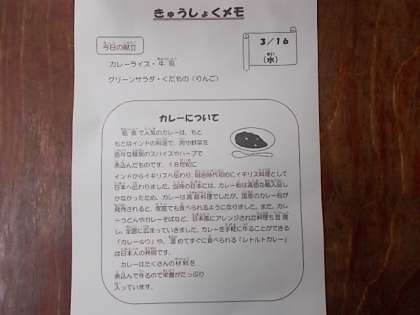 きゅうしょくメモ
今日の献立
3/16
(水)
カレーライス・牛乳
グリーンサラダ・くだもの(りんご)
カレーについて
給食で人気のカレーは、もと
もとはインドの料理で、肉や野菜を
色々な種類のスパイスやハーブで
煮込んだものです。18世紀に
インドからイギリスへ伝わり、明治時代初めにイギリス料理として
日本へ伝わりました。当時の日本には、カレー粉は高価な輸入品し
かなかったため、カレーは高級料理でしたが、国産のカレー粉が
発売されると、家庭でも食べられるようになりました。また、カレ
ーうどんやカレーそばなど、日本風にアレンジされた料理も登場
し、全国に広まっていきました。カレーを手軽に作ることができる
「カレールウ」や、温めてすぐに食べられる「レトルトカレー」
は日本人の発明です。
カレーはたくさんの材料を
煮込んで作るので栄養がたっぷり
入っています。